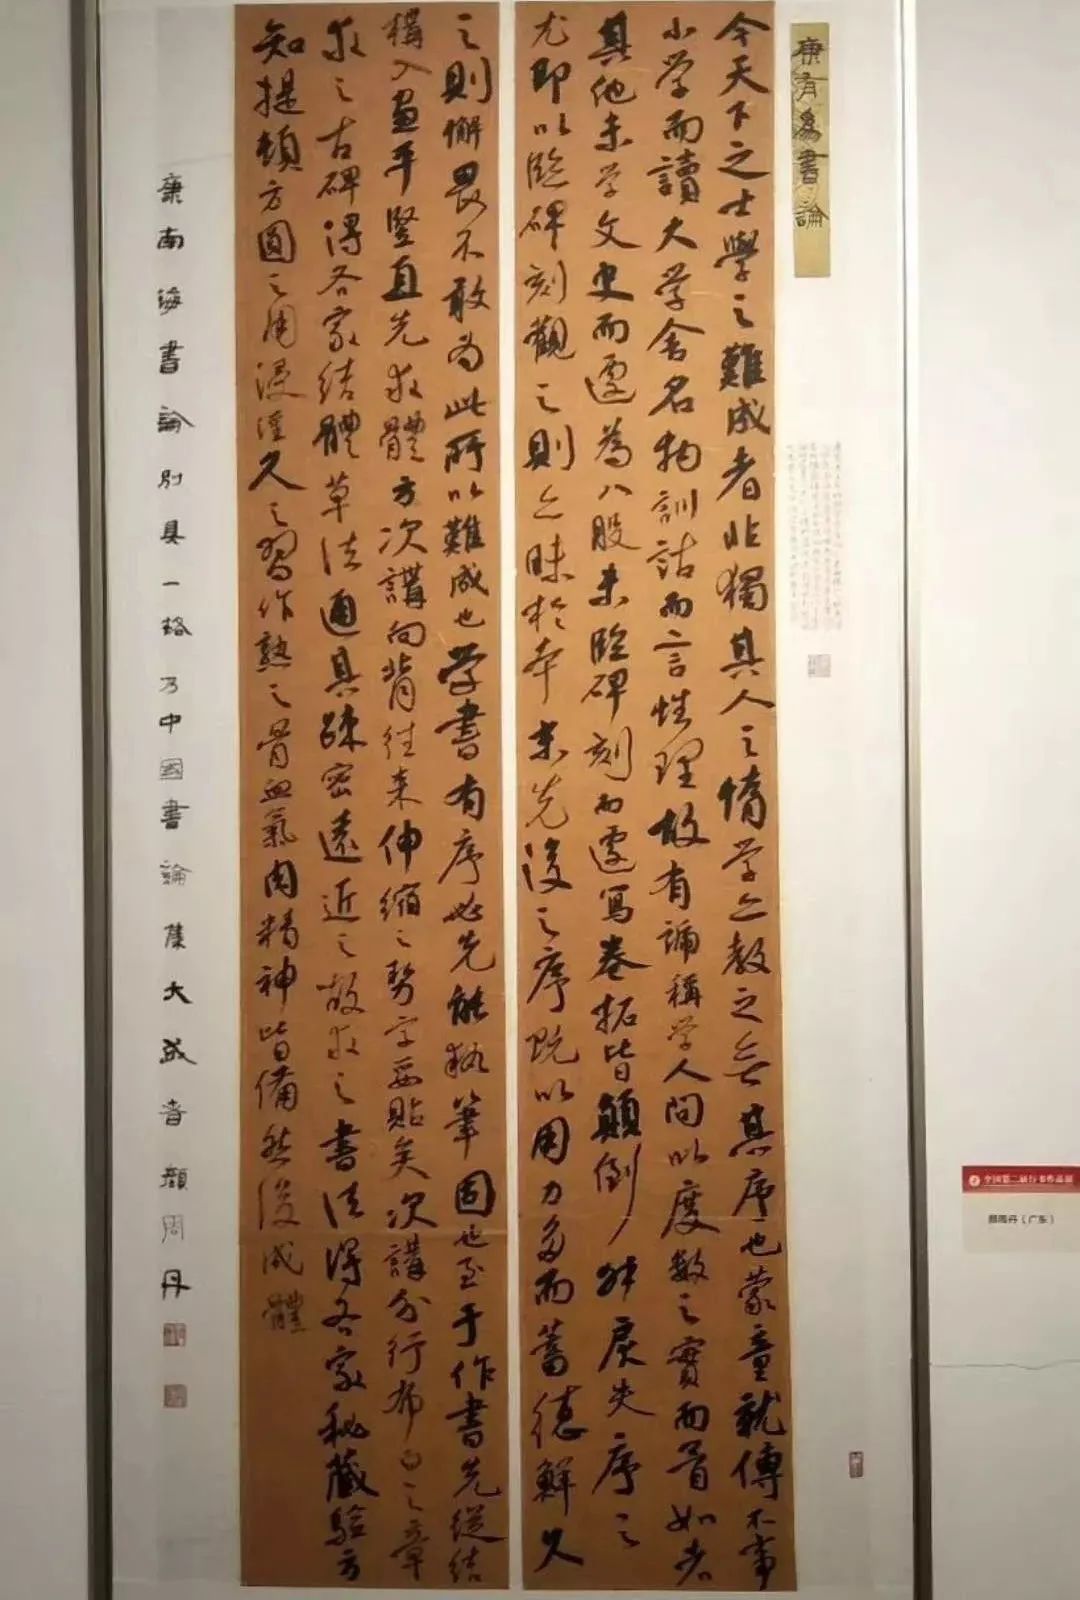 康有為書論
今天下之士學之難成者非獨其人之惰學亡教之無其序也蒙童就傅不事
小学而讀大学舍名物訓詁而言性理故有誦稱学人问以度數之實而瞢如者
其他未学文史而遽為八股未臨碑刻而遽寫卷拓皆顛倒舛戾失序之
尤即以臨碑刻觀之則亡昧於本末先後之序既以用力多而蓄德鮮久
之則懈畏不敢为此所以難成也学書有序必先能執筆固也至于作書先從結
構入畫平豎直先求體方次講向背往来伸缩之勢字妥貼矣次講分行布白之章
求之古碑得各家結體草法通其疎密遠近之故求之書法得各家秘藏驗方
知提頓方圓之用浸淫久之習作熟之骨血氣肉精神皆備然後成體
康南海書論別具一格乃中國書論集大成者顏周丹
全国第二届行书作品展
颜周丹（广东）